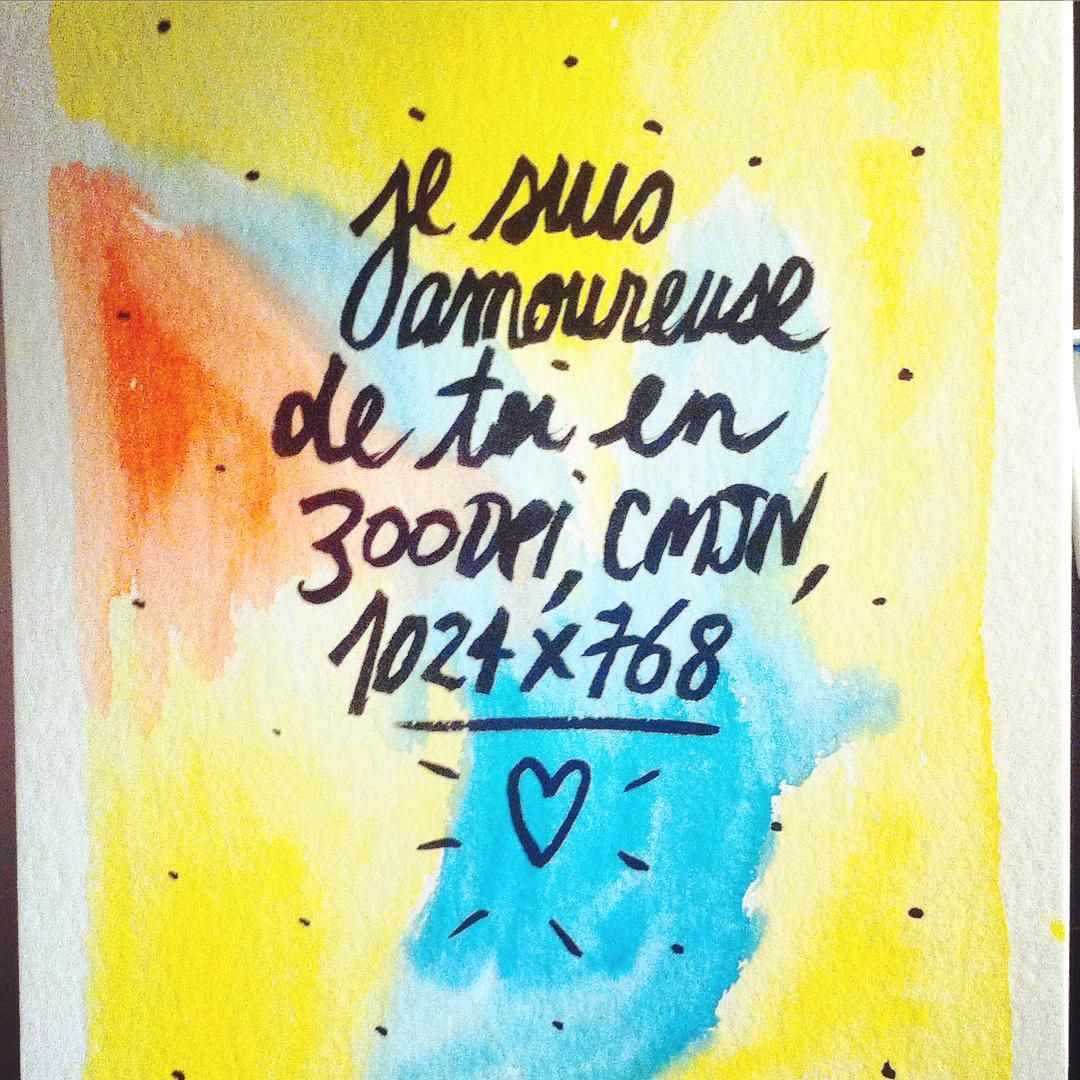 je suis
amoureuse
de toi en
300DPI, CMJN,
1024x768